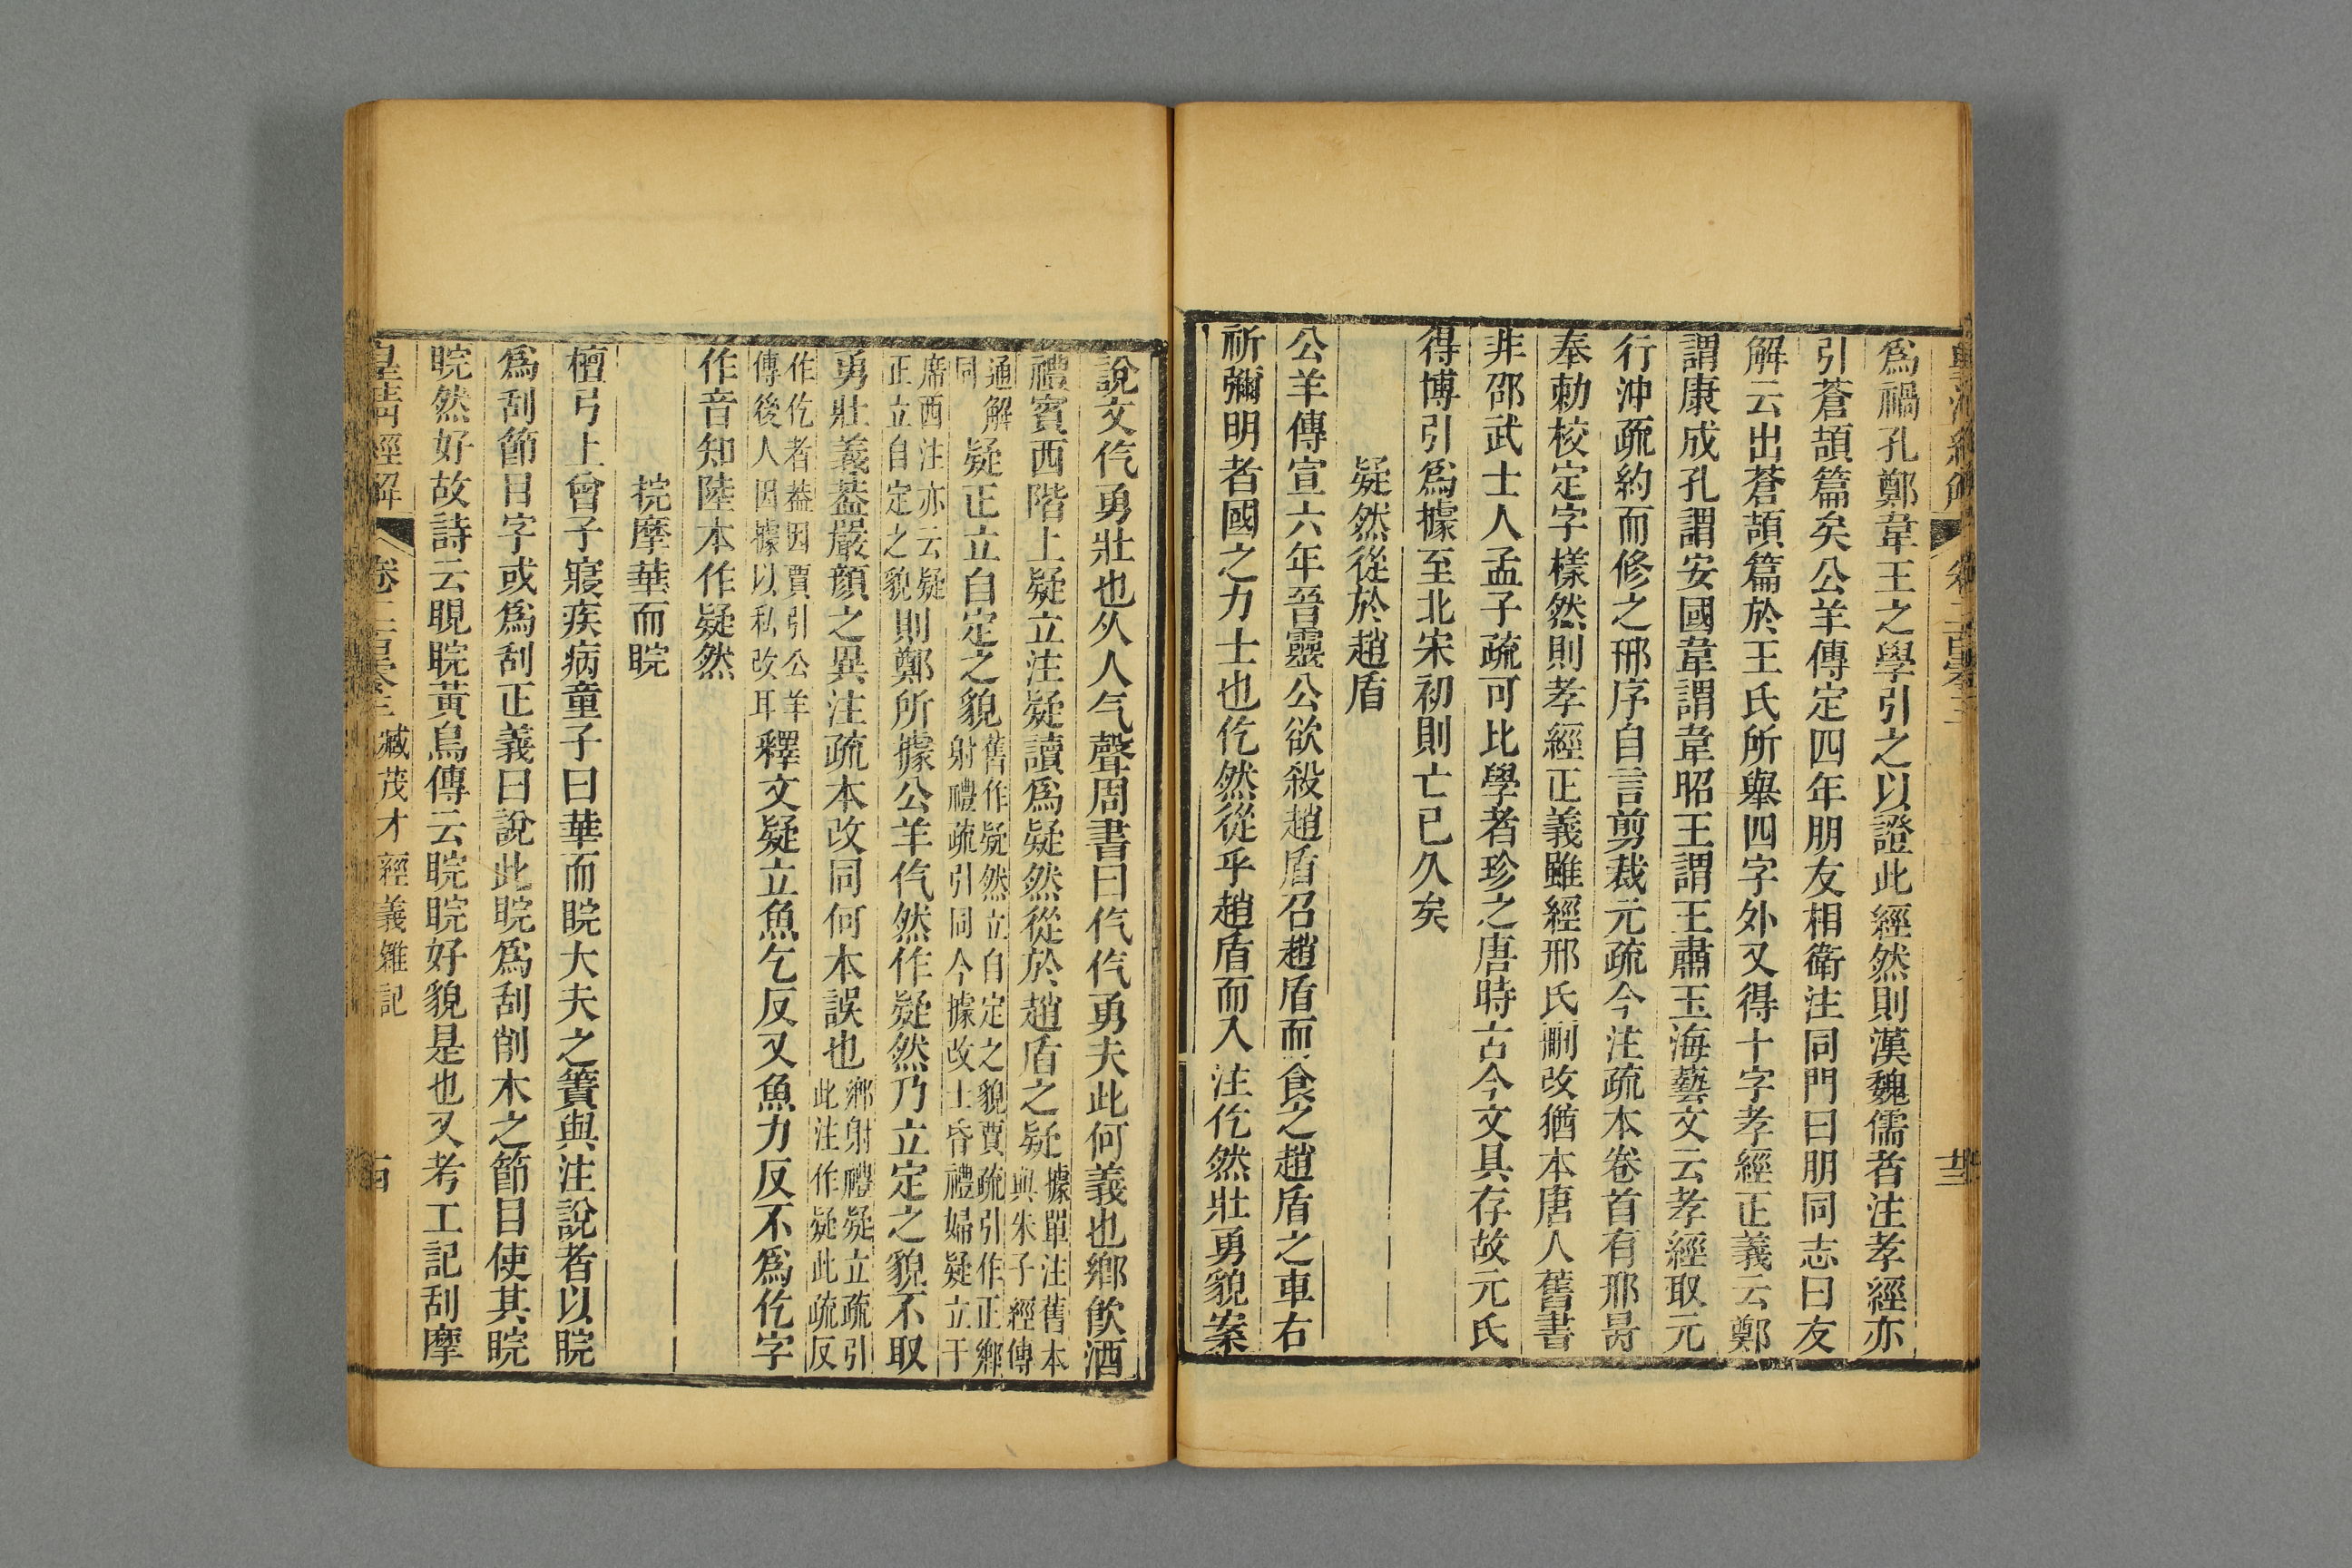 爲禍孔鄭韋王之學引之以證此經然則漢魏儒者注孝經亦
引蒼頡篇矣公羊傳定四年朋友相衛注同門曰朋同志曰友
解云出蒼頡篇於王氏所舉四字外又得十字孝經正義云鄭
謂康成孔謂安國韋謂韋昭王謂王肅玉海藝文云孝經取元
行沖疏約而修之邢序自言剪裁元疏今注疏本卷首有邢昺
奉勅校定字樣然則孝經正義雖經邢氏刪改猶本唐人舊書
非邵武士人孟子疏可比學者珍之唐時古今文具存故元氏
得博引爲據至北宋初則亡已久矣
疑然從於趙盾
公羊傳宣六年晉靈公欲殺趙盾召趙盾而食之趙盾之車右
祈彌明者國之力士也仡然從乎趙盾而入注仡然壯勇貌案
說文仡勇壯也从人气聲周書曰仡仡勇夫此何義也鄉飮酒
禮賓西階上疑立注疑讀爲疑然從於趙盾之疑據單注舊本
與朱子經傳
通解
同疑正立自定之貌舊作疑然立自定之貌賈疏引作正鄉
射禮疏引同今據改士昏禮婦疑立于
席西注亦云疑
正立自定之貌則鄭所據公羊仡然作疑然乃立定之貌不取
勇壯義葢嚴顏之異注疏本改同何本誤也鄉射禮疑立疏引
此注作疑此疏反
作仡者葢因賈引公羊
傳後人因據以私改耳釋文疑立魚乞反又魚力反不爲仡字
作音知陸本作疑然
捖摩華而睆
檀弓上曾子寢疾病童子曰華而睆大夫之簀與注說者以睆
爲刮節目字或爲刮正義曰說此睆爲刮削木之節目使其睆
睆然好故詩云睍睆黃鳥傳云睍睆好貌是也又考工記刮摩
皇淸經解 臧茂才經義雜記